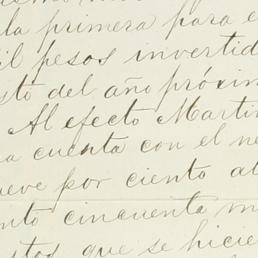 la primera para e
il pesos invertid
sto del año próxim
Al efecto Martin
a cuenta con el ne
ueve por ciento a
nto cincuenta m
stos que se hicie